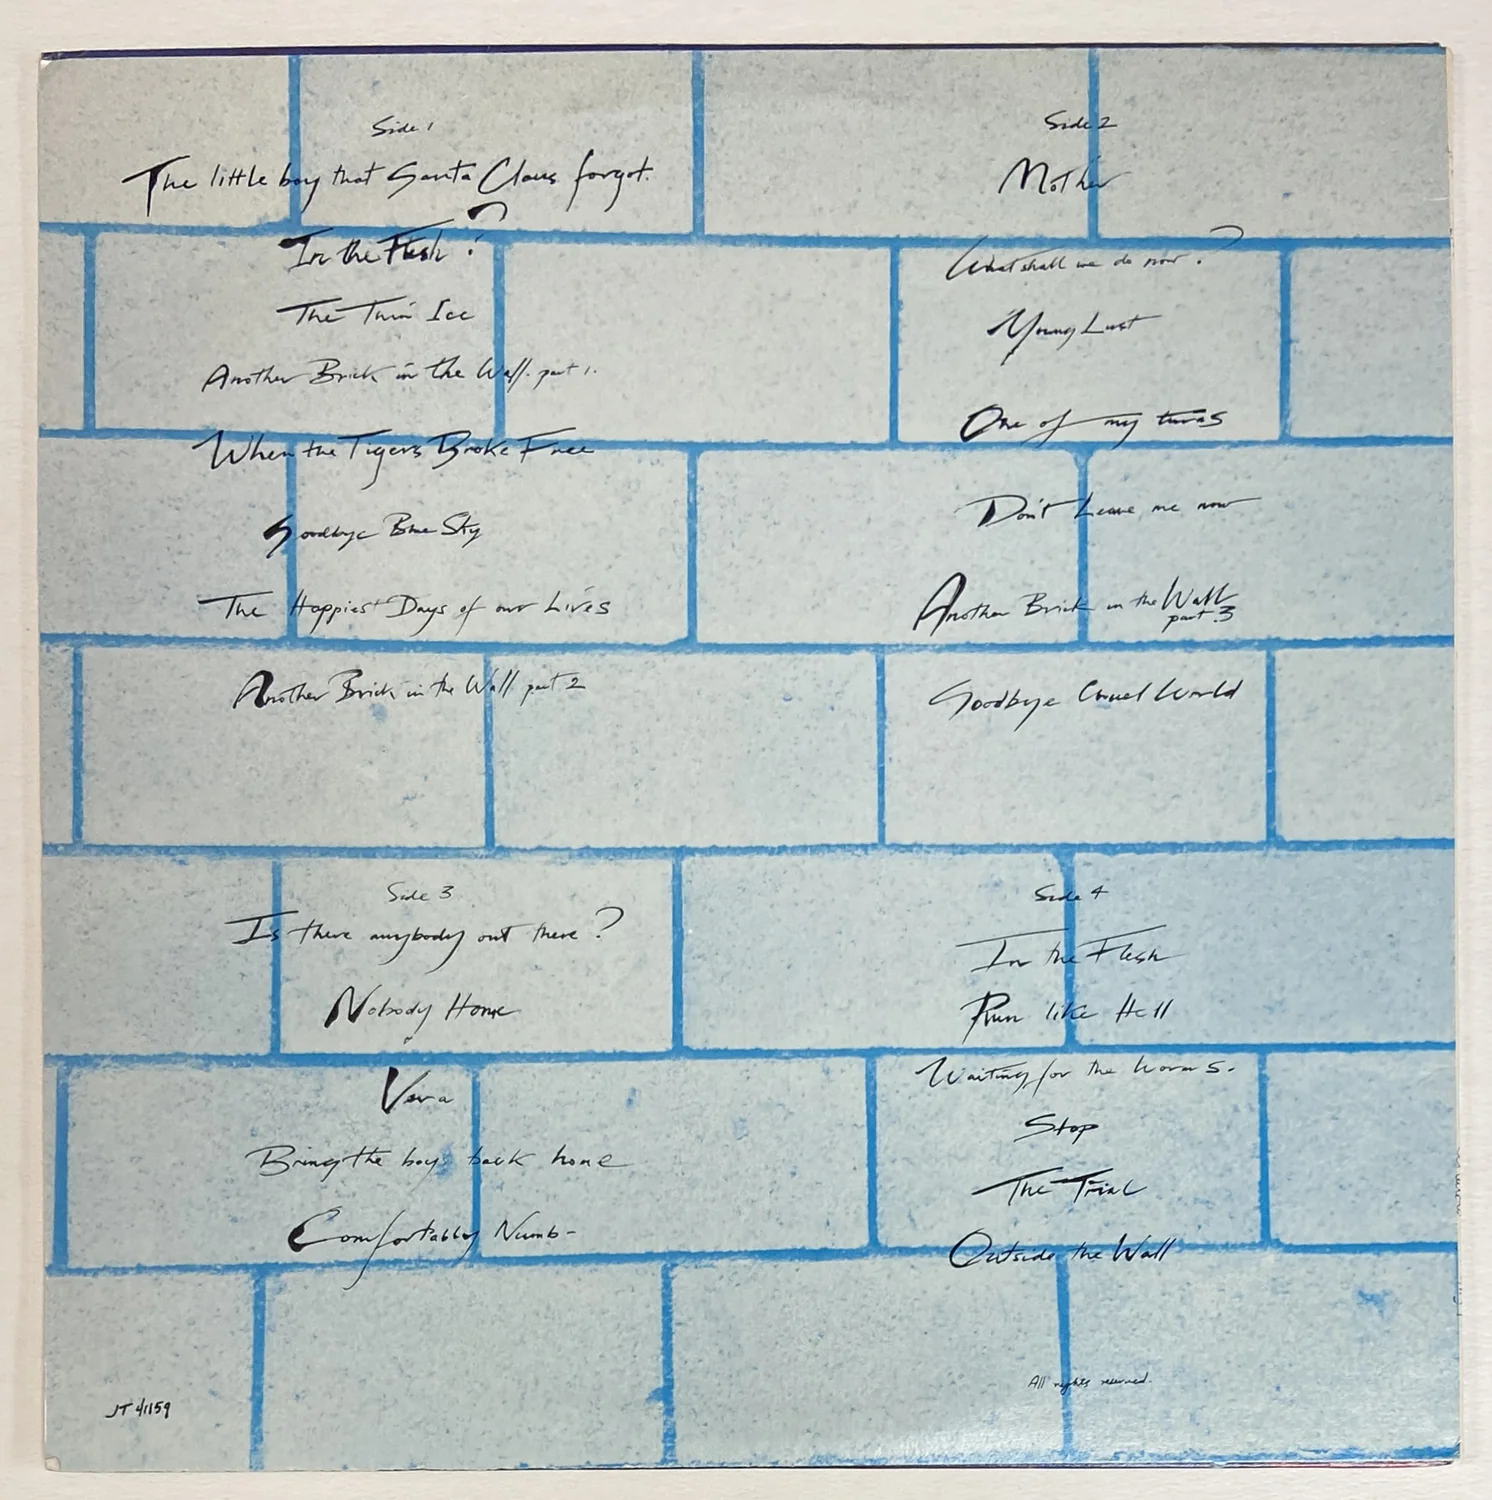 Side 1
The little boy that Santa Claus forgot.
In the Flesh?
The Thin Ice
Another Brick in the Wall. part 1.
When the Tigers Broke Free
Goodbye Blue Sky
The Happiest Days of our Lives
Another Brick in the Wall part 2
Side 2
Mother
What shall we do now?
Young Lust
One of my turns
Don't Leave me now
Another Brick in the Wall
part 3
Goodbye Cruel World
Side 3
Is there anybody out there?
Nobody Home
Vera
Bring the boys back home
Comfortably Numb-
Side 4
In the Flesh
Run like Hell
Waiting for the Worms.
Stop
The Trial
Outside the Wall
All rights reserved.
JT 41159